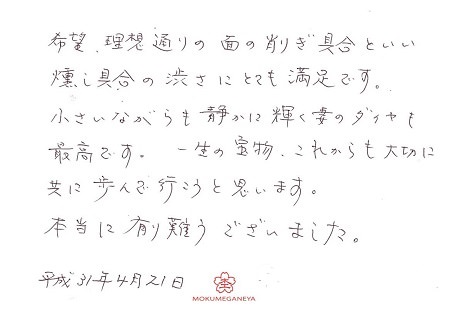 希望、理想通りの面の削りぎ具合といい
燻し具合の渋さにとても満足です。
小さいながらも静かに輝く妻のダイヤも
最高です。一生の宝物、これからも大切に
共に歩んで行こうと思います。
本当に有り難うございました。
平成31年4月21日
杢
MOKUMEGANEYA